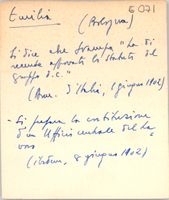 Emilia E 071
(Bologna)
- Si dice che stampa "ha di
recente approvato lo statuto del
gruppo d.c."
(Avv. d'Italia, 1 giugno 1902)
- Si prepara la costituzione
d'un Ufficio centrale del la
voro
(ibidem, 8 giugno 1902)